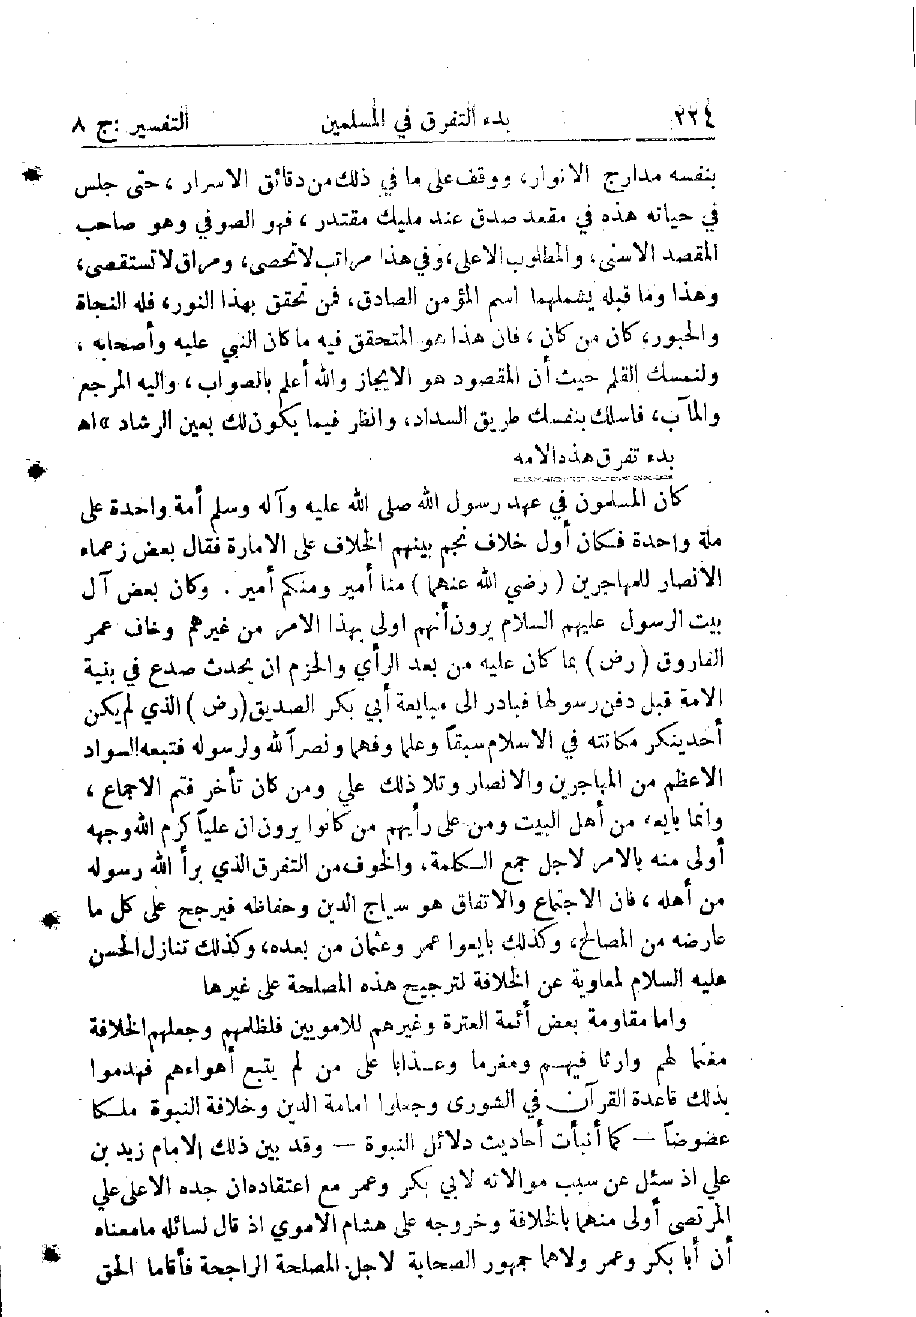 ٢٢٤ بدء التفرق في المسلمين التفسير : ج ٨
بنفسه مدارج الانوار، ووقف على ما في ذلك من دقائق الاسرار ، حتى جلس
في حياته هذه في مقعد صدق عند مليك مقتدر ، فهو الصوفي وهو صاحب
المقصد الاسنى، والمطلوب الاعلى، وفي هذا مراتب لا تحصى، ومراق لا تستقصى،
وهذا وما قبله يشملهما اسم المؤمن الصادق، فمن تحقق بهذا النور، فله النجاة
والحبور، كان من كان ، فان هذا هو المتحقق فيه ما كان النبي عليه وأصحابه ،
ولنمسك القلم حيث أن المقصود هو الايجاز والله أعلم بالصواب ، واليه المرجع
والمآب، فاسلك بنفسك طريق السداد، وانظر فيما يكون لك بعين الرشاد » اهـ
بدء تفرق هذه الامه
كان المسلمون في عهد رسول الله صلى الله عليه وآله وسلم أمة واحدة على
ملة واحدة فكان أول خلاف نجم بينهم الخلاف على الامارة فقال بعض زعماء
الانصار للمهاجرين ( رضي الله عنهما ) منا أمير ومنكم أمير . وكان بعض آل
بيت الرسول عليهم السلام يرون أنهم اولى بهذا الامر من غيرهم وخاف عمر
الفاروق ( رض ) بما كان عليه من بعد الرأي والحزم ان يحدث صدع في بنية
الامة قبل دفن رسولها فبادر الى مبايعة أبي بكر الصديق ( رض ) الذي لم يكن
أحد ينكر مكانته في الاسلام سبقاً وعلما وفهما ونصراً لله ولرسوله فتبعه السواد
الاعظم من المهاجرين والانصار وتلا ذلك علي ومن كان تأخر فتم الاجماع ،
وانما بايعه من أهل البيت ومن على رأيهم من كانوا يرون ان علياً كرم الله وجهه
أولى منه بالامر لاجل جمع الكلمة، والخوف من التفرق الذي برأ الله رسوله
من أهله ، فان الاجتماع والاتفاق هو سياج الدين وحفاظه فيرجح على كل ما
عارضه من المصالح، وكذلك بايعوا عمر وعثمان من بعده، وكذلك تنازل الحسن
عليه السلام لمعاوية عن الخلافة لترجيح هذه المصلحة على غيرها
واما مقاومة بعض أئمة العترة وغيرهم للامويين فلظلمهم وجعلهم الخلافة
مغنما لهم وارثا فيهم ومغرما وعذابا على من لم يتبع أهواءهم فهدموا
بذلك قاعدة القرآن في الشورى وجعلوا امامة الدين وخلافة النبوة ملكا
عضوضاً — كما أنبأت أحاديث دلائل النبوة — وقد بين ذلك الامام زيد بن
علي اذ سئل عن سبب موالاته لابي بكر وعمر مع اعتقاده ان جده الاعلى علي
المرتضى أولى منهما بالخلافة وخروجه على هشام الاموي اذ قال لسائله ما معناه
أن أبا بكر وعمر ولاهما جمهور الصحابة لاجل المصلحة الراجحة فأقاما الحق